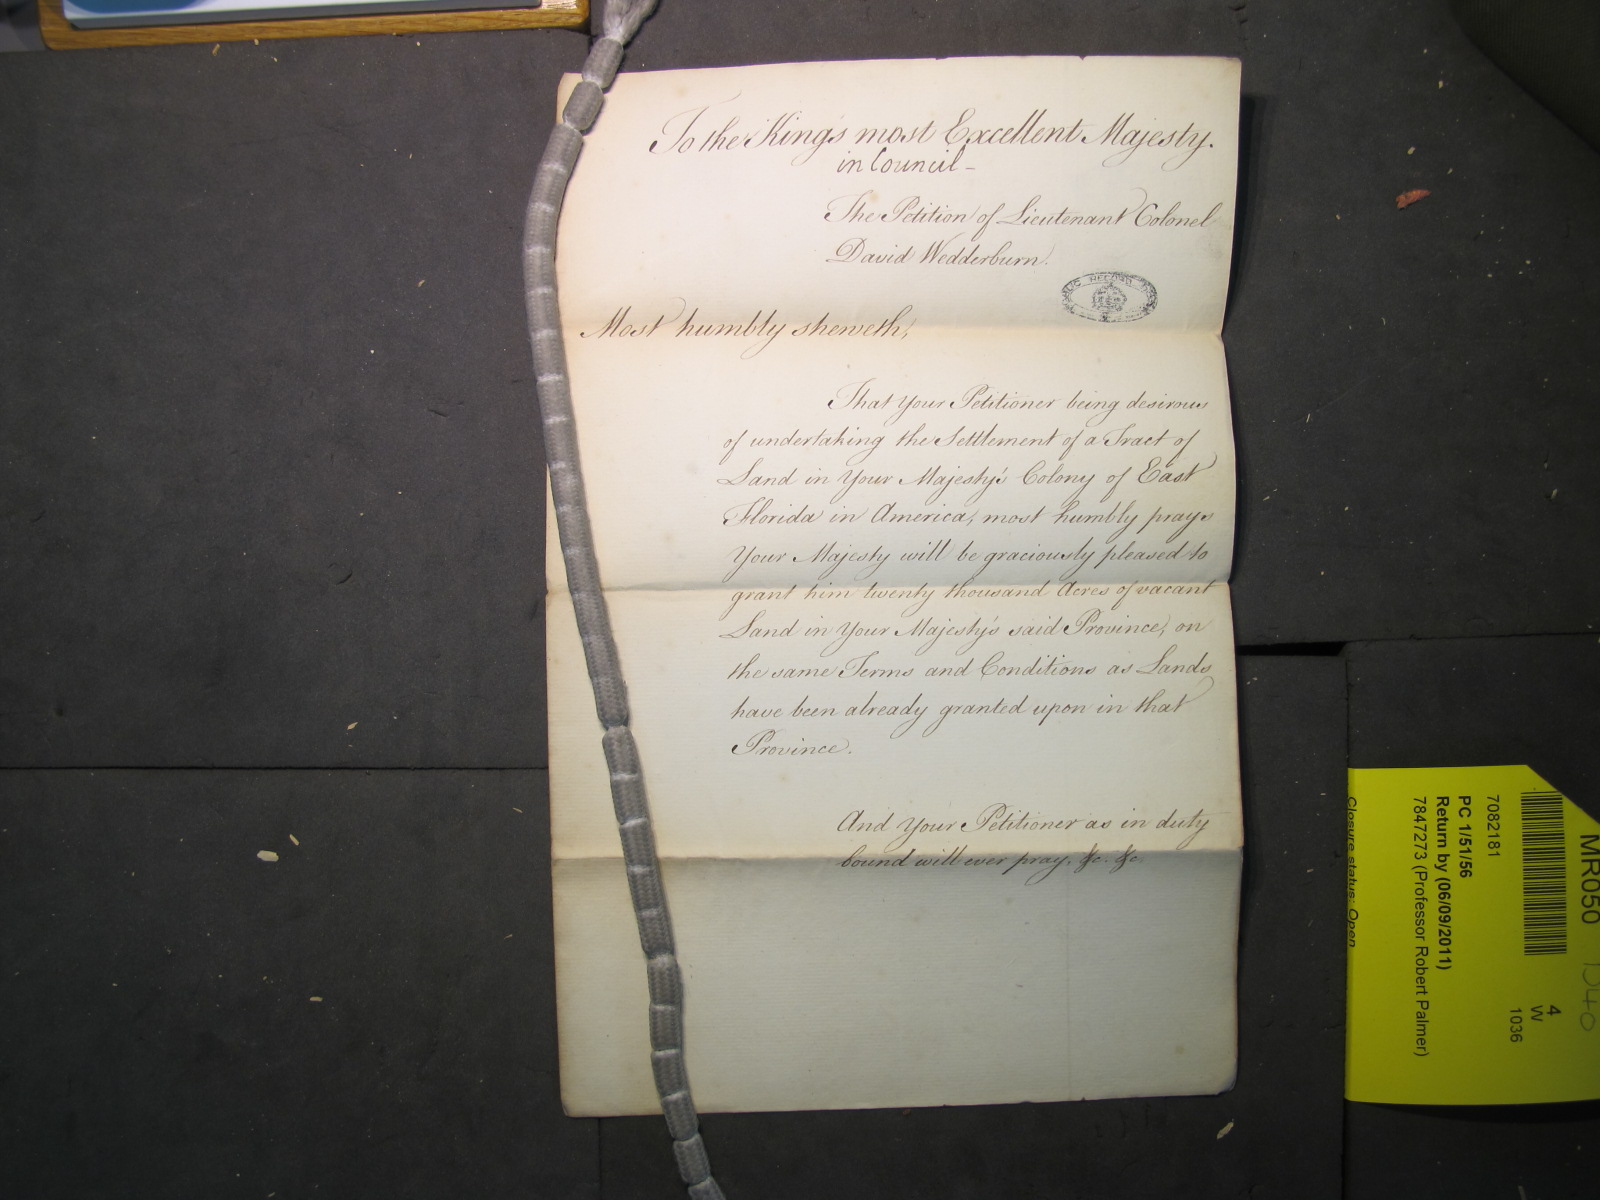 To the King's most Excellent Majesty.
in Council -
The Petition of Lieutenant Colonel
David Wedderburn.
PUBLIC RECORD
Most humbly sheweth,
That Your Petitioner being desirous
of undertaking the Settlement of a Tract of
Land in Your Majesty's Colony of East
Florida in America, most humbly prays
Your Majesty will be graciously pleased to
grant him twenty thousand Acres of vacant
Land in Your Majesty's said Province, on
the same Terms and Conditions as Lands
have been already granted upon in that
Province.
And Your Petitioner as in duty
bound will ever pray. &c. &c.
MR050 1040
4
W
1036
7082181
PC 1/51/56
Return by (06/09/2011)
7847273 (Professor Robert Palmer)
Closure status: Open